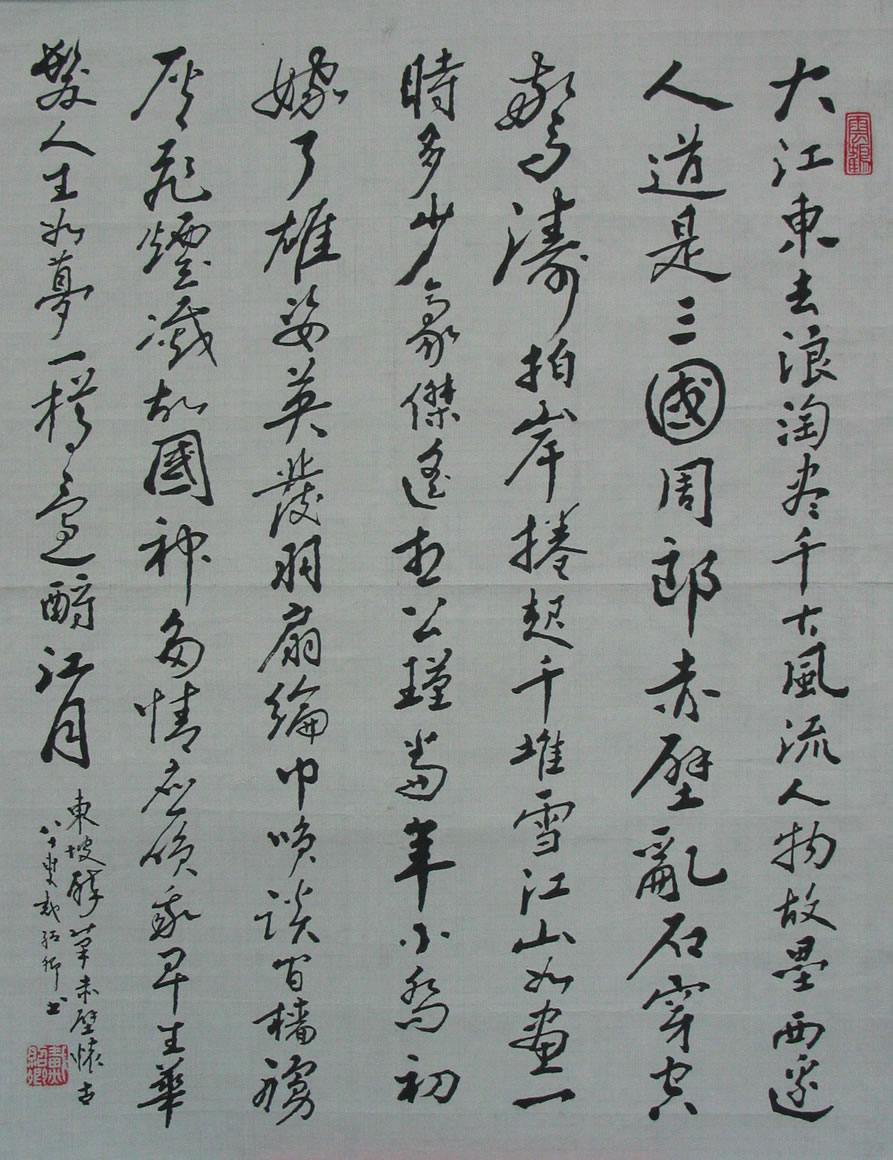 大江東去浪淘尽千古風流人物故壘西邊
人道是三國周郎赤壁亂石穿空
驚濤拍岸捲起千堆雪江山如畫一
時多少豪傑遙想公瑾當年小喬初
嫁了雄姿英發羽扇綸巾笑談間檣櫓
灰飛煙滅故國神多情應笑我早生華
髮人生如夢一樽還酹江月
東坡醉筆赤壁懷古
八十叟戴紹卿書
戴紹卿